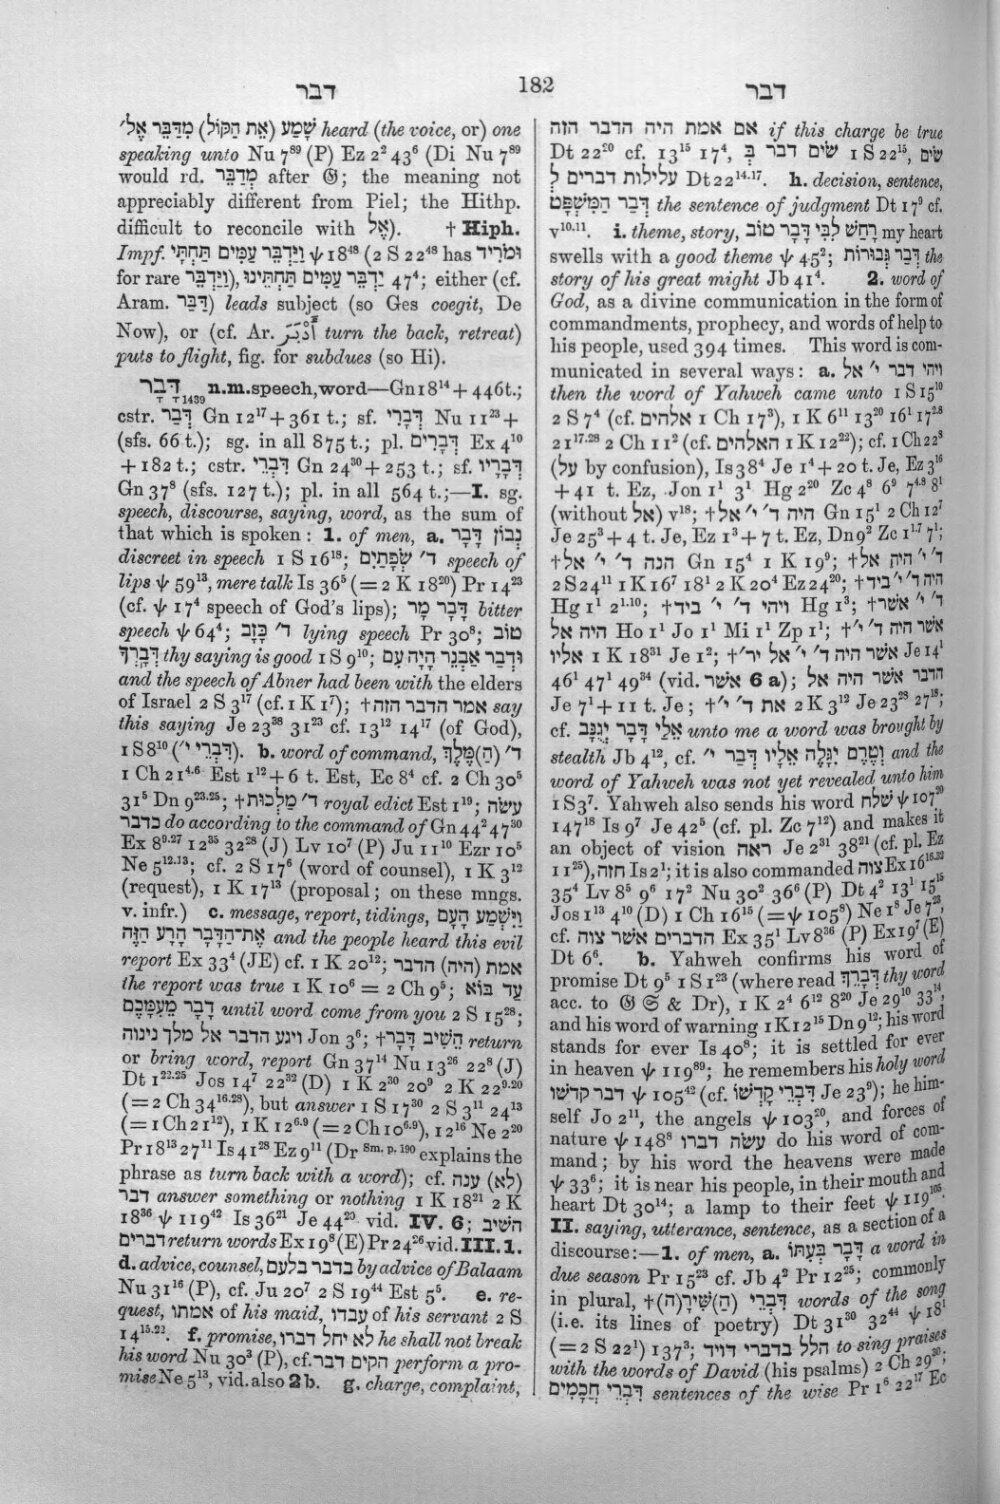 דבר 182 דבר
שָׁמַע (אֶת הַקּוֹל) מִדַּבֵּר אֶל־ heard (the voice, or) one
speaking unto Nu 7⁸⁹ (P) Ez 2² 43⁶ (Di Nu 7⁸⁹
would rd. מְדַבֵּר after 𝔊; the meaning not
appreciably different from Piel; the Hithp.
difficult to reconcile with אֶל). † Hiph.
Impf. וַיַּדְבֵּר עַמִּים תַּחְתָּי ψ 18⁴⁸ (2 S 22⁴⁸ has וּמֹרִיד
for rare וַיַּדְבֵּר), יַדְבֵּר עַמִּים תַּחְתֵּינוּ 47⁴; either (cf.
Aram. דַּבַּר) leads subject (so Ges coegit, De
Now), or (cf. Ar. أَدْبَرَ turn the back, retreat)
puts to flight, fig. for subdues (so Hi).
דָּבָר 1439 n.m. speech, word—Gn 18¹⁴ + 446 t.;
cstr. דְּבַר Gn 12¹⁷ + 361 t.; sf. דְּבָרִי Nu 11²³ +
(sfs. 66 t.); sg. in all 875 t.; pl. דְּבָרִים Ex 4¹⁰
+ 182 t.; cstr. דִּבְרֵי Gn 24³⁰ + 253 t.; sf. דְּבָרָיו
Gn 37⁸ (sfs. 127 t.); pl. in all 564 t.;—I. sg.
speech, discourse, saying, word, as the sum of
that which is spoken : 1. of men, a. נְבוֹן דָּבָר
discreet in speech 1 S 16¹⁸; ד׳ שְׂפָתַיִם speech of
lips ψ 59¹³, mere talk Is 36⁵ (= 2 K 18²⁰) Pr 14²³
(cf. ψ 17⁴ speech of God's lips); דָּבָר מָר bitter
speech ψ 64⁴; ד׳ כָּזָב lying speech Pr 30⁸; טוֹב
דְּבָרְךָ thy saying is good 1 S 9¹⁰; וּדְבַר אַבְנֵר הָיָה עִם
and the speech of Abner had been with the elders
of Israel 2 S 3¹⁷ (cf. 1 K 1⁷); †אמר הדבר הזה say
this saying Je 23³⁸ 31²³ cf. 13¹² 14¹⁷ (of God),
1 S 8¹⁰ (דִּבְרֵי י׳). b. word of command, ד׳ (הַ)מֶּלֶךְ
1 Ch 21⁴·⁶ Est 1¹² + 6 t. Est, Ec 8⁴ cf. 2 Ch 30⁵
31⁵ Dn 9²³·²⁵; †ד׳ מַלְכוּת royal edict Est 1¹⁹; עשׂה
כדבר do according to the command of Gn 44² 47³⁰
Ex 8⁹·²⁷ 12³⁵ 32²⁸ (J) Lv 10⁷ (P) Ju 11¹⁰ Ezr 10⁵
Ne 5¹²·¹³; cf. 2 S 17⁶ (word of counsel), 1 K 3¹²
(request), 1 K 17¹³ (proposal; on these mngs.
v. infr.) c. message, report, tidings, וַיִּשְׁמַע הָעָם
אֶת־הַדָּבָר הָרָע הַזֶּה and the people heard this evil
report Ex 33⁴ (JE) cf. 1 K 20¹²; אמת (היה) הדבר
the report was true 1 K 10⁶ = 2 Ch 9⁵; עַד בּוֹא
דָבָר מֵעִמָּכֶם until word come from you 2 S 15²⁸;
ויגע הדבר אל מלך נינוה Jon 3⁶; †הֵשִׁיב דָּבָר return
or bring word, report Gn 37¹⁴ Nu 13²⁶ 22⁸ (J)
Dt 1²²·²⁵ Jos 14⁷ 22³² (D) 1 K 2³⁰ 20⁹ 2 K 22⁹·²⁰
(= 2 Ch 34¹⁶·²⁸), but answer 1 S 17³⁰ 2 S 3¹¹ 24¹³
(= 1 Ch 21¹²), 1 K 12⁶·⁹ (= 2 Ch 10⁶·⁹), 12¹⁶ Ne 2²⁰
Pr 18¹³ 27¹¹ Is 41²⁸ Ez 9¹¹ (Dr Sm. p. 190 explains the
phrase as turn back with a word); cf. (לא) ענה
דבר answer something or nothing 1 K 18²¹ 2 K
18³⁶ ψ 119⁴² Is 36²¹ Je 44²⁰ vid. IV. 6; השׁיב
דברים return words Ex 19⁸ (E) Pr 24²⁶ vid. III. 1.
d. advice, counsel, בדבר בלעם by advice of Balaam
Nu 31¹⁶ (P), cf. Ju 20⁷ 2 S 19⁴⁴ Est 5⁵. e. re-
quest, אמתו of his maid, עבדו of his servant 2 S
14¹⁵·²². f. promise, לא יחל דברו he shall not break
his word Nu 30³ (P), cf. הקים דבר perform a pro-
mise Ne 5¹³, vid. also 2 b. g. charge, complaint,
אם אמת היה הדבר הזה if this charge be true
Dt 22²⁰ cf. 13¹⁵ 17⁴, שׂים דבר בְּ 1 S 22¹⁵, שׂים
עלילות דברים לְ Dt 22¹⁴·¹⁷. h. decision, sentence,
דְּבַר הַמִּשְׁפָּט the sentence of judgment Dt 17⁹ cf.
v¹⁰·¹¹. i. theme, story, רָחַשׁ לִבִּי דָּבָר טוֹב my heart
swells with a good theme ψ 45²; דְּבַר גְּבוּרוֹת the
story of his great might Jb 41⁴. 2. word of
God, as a divine communication in the form of
commandments, prophecy, and words of help to
his people, used 394 times. This word is com-
municated in several ways : a. ויהי דבר י׳ אל
then the word of Yahweh came unto 1 S 15¹⁰
2 S 7⁴ (cf. אלהים 1 Ch 17³), 1 K 6¹¹ 13²⁰ 16¹ 17²·⁸
21¹⁷·²⁸ 2 Ch 11² (cf. האלהים 1 K 12²²); cf. 1 Ch 22⁸
(על by confusion), Is 38⁴ Je 1⁴ + 20 t. Je, Ez 3¹⁶
+ 41 t. Ez, Jon 1¹ 3¹ Hg 2²⁰ Zc 4⁸ 6⁹ 7⁴·⁸ 8¹
(without אל) v¹⁸; †היה ד׳ י׳ אל Gn 15¹ 2 Ch 12⁷
Je 25³ + 4 t. Je, Ez 1³ + 7 t. Ez, Dn 9² Zc 1¹·⁷ 7¹;
†הנה ד׳ י׳ אל Gn 15⁴ 1 K 19⁹; †ד׳ י׳ היה אל
2 S 24¹¹ 1 K 16⁷ 18¹ 2 K 20⁴ Ez 24²⁰; †היה ד׳ י׳ ביד
Hg 1¹ 2¹·¹⁰; †ויהי ד׳ י׳ ביד Hg 1³; †ד׳ י׳ אשׁר
היה אל Ho 1¹ Jo 1¹ Mi 1¹ Zp 1¹; †אשׁר היה ד׳ י׳
אליו 1 K 18³¹ Je 1²; †אשׁר היה ד׳ י׳ אל יר׳ Je 14¹
46¹ 47¹ 49³⁴ (vid. אשׁר 6 a); הדבר אשׁר היה אל
Je 7¹ + 11 t. Je; †את ד׳ י׳ 2 K 3¹² Je 23²⁸ 27¹⁸;
cf. אֵלַי דָּבָר יְגֻנָּב unto me a word was brought by
stealth Jb 4¹², cf. וְטֶרֶם יִגָּלֶה אֵלָיו דְּבַר י׳ and the
word of Yahweh was not yet revealed unto him
1 S 3⁷. Yahweh also sends his word שׁלח ψ 107²⁰
147¹⁸ Is 9⁷ Je 42⁵ (cf. pl. Zc 7¹²) and makes it
an object of vision ראה Je 2³¹ 38²¹ (cf. pl. Ez
11²⁵), חזה Is 2¹; it is also commanded צוה Ex 16¹⁶·³²
35⁴ Lv 8⁵ 9⁶ 17² Nu 30² 36⁶ (P) Dt 4² 13¹ 15¹⁵
Jos 1¹³ 4¹⁰ (D) 1 Ch 16¹⁵ (= ψ 105⁸) Ne 1⁸ Je 7²³,
cf. הדברים אשׁר צוה Ex 35¹ Lv 8³⁶ (P) Ex 19⁷ (E)
Dt 6⁶. b. Yahweh confirms his word of
promise Dt 9⁵ 1 S 1²³ (where read דְּבָרֵךְ thy word
acc. to 𝔊 𝔖 & Dr), 1 K 2⁴ 6¹² 8²⁰ Je 29¹⁰ 33¹⁴;
and his word of warning 1 K 12¹⁵ Dn 9¹²; his word
stands for ever Is 40⁸; it is settled for ever
in heaven ψ 119⁸⁹; he remembers his holy word
דבר קדשׁו ψ 105⁴² (cf. דִּבְרֵי קָדְשׁוֹ Je 23⁹); he him-
self Jo 2¹¹, the angels ψ 103²⁰, and forces of
nature ψ 148⁸ עשׂה דברו do his word of com-
mand; by his word the heavens were made
ψ 33⁶; it is near his people, in their mouth and
heart Dt 30¹⁴; a lamp to their feet ψ 119¹⁰⁵.
II. saying, utterance, sentence, as a section of a
discourse:—1. of men, a. דָּבָר בְּעִתּוֹ a word in
due season Pr 15²³ cf. Jb 4² Pr 12²⁵; commonly
in plural, †דִּבְרֵי (הַ)שִּׁיר(ָה) words of the song
(i.e. its lines of poetry) Dt 31³⁰ 32⁴⁴ ψ 18¹
(= 2 S 22¹) 137³; הלל בדברי דויד to sing praises
with the words of David (his psalms) 2 Ch 29³⁰;
דִּבְרֵי חֲכָמִים sentences of the wise Pr 1⁶ 22¹⁷ Ec